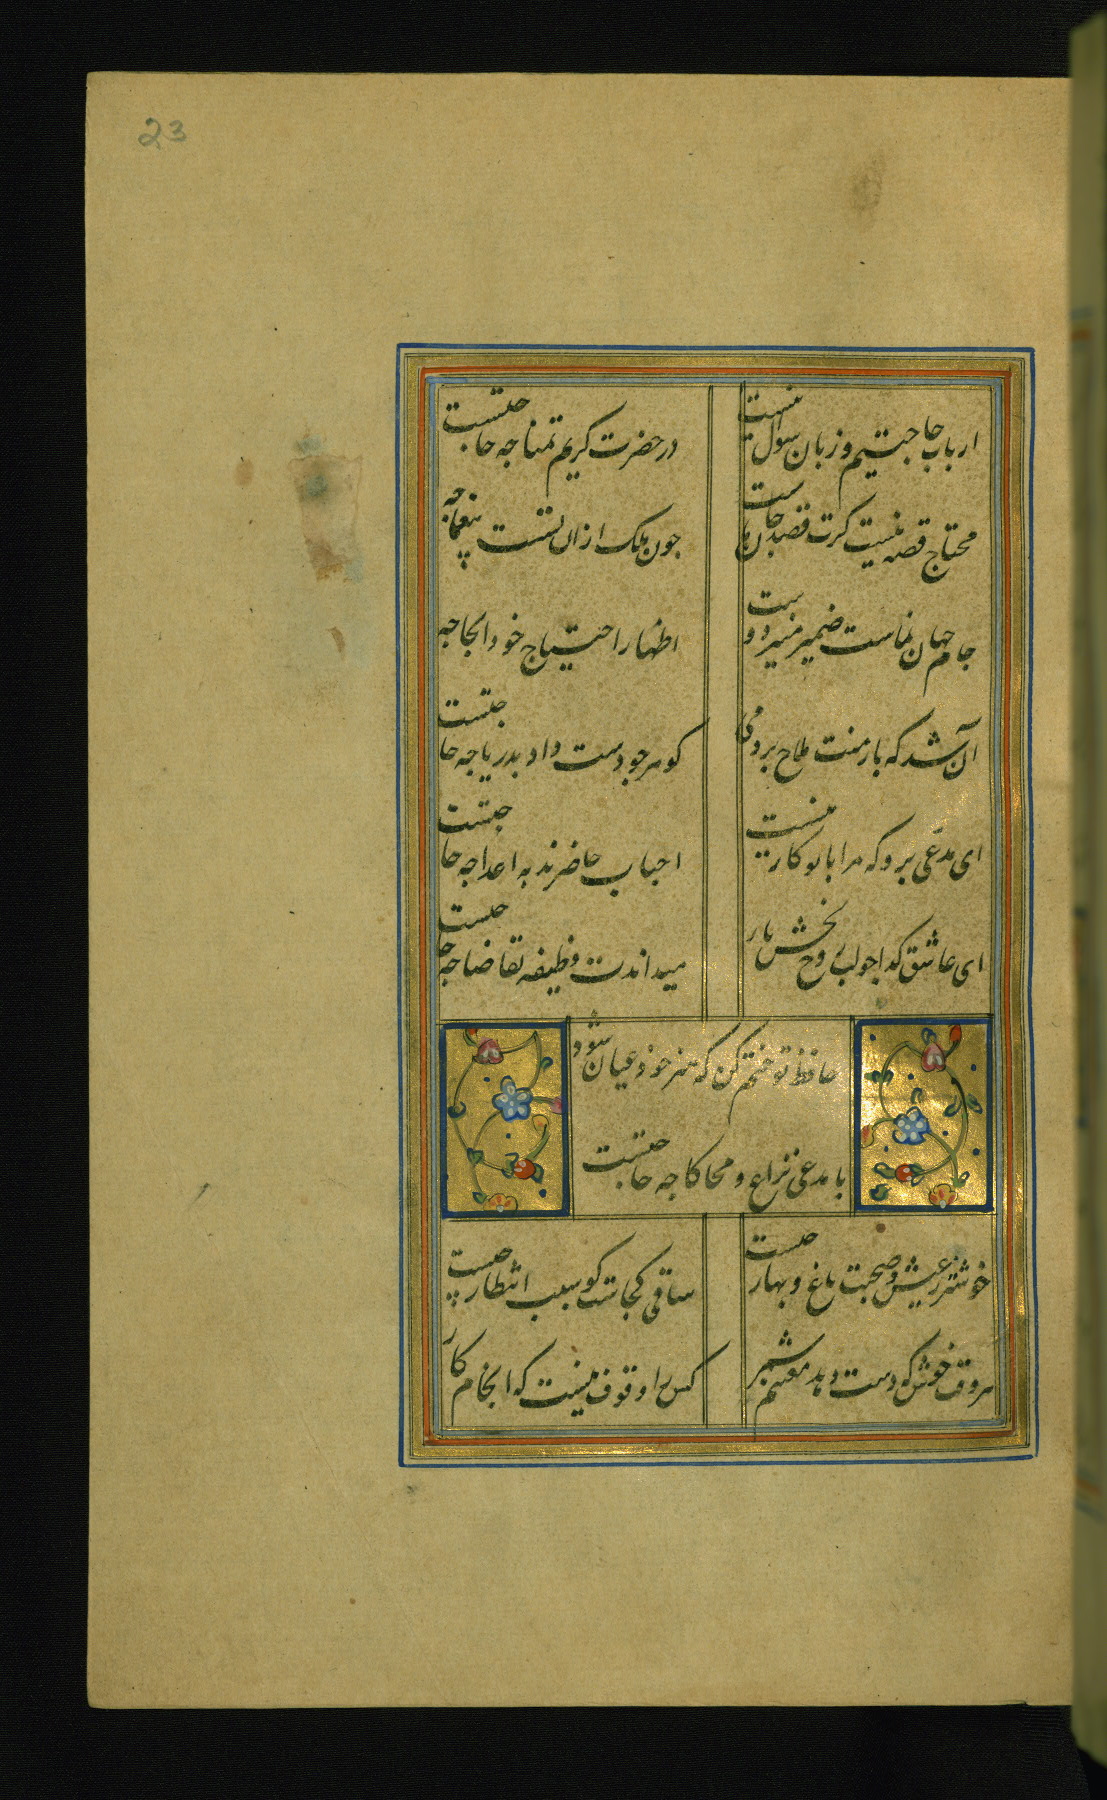 23
ارباب حاجتیم و زبان سوال نیست
در حضرت کریم تمنا چه حاجتست
محتاج قصه نیست گرت قصد جان ماست
چون ملک ازان تست بیغما چه
جام جهان نماست ضمیر منیر دوست
اظهار احتیاج خود آنجا چه
آن شد که بار منت ملاح بردمی
گوهر چو دست داد بدریا چه حاجتست
ای مدعی برو که مرا با تو کار نیست
احباب حاضرند به اعدا چه حاجتست
ای عاشق گدا چو لب روح بخش یار
میداندت وظیفه تقاضا چه حاجتست
حافظ تو ختم کن که هنر خود عیان شود
با مدعی نزاع و محاکا چه حاجتست
خوشتر ز عیش و صحبت باغ و بهار چیست
ساقی کجاست کو سبب انتظار چیست
هر وقت خوش که دست دهد مغتنم شمر
کس را وقوف نیست که انجام کار